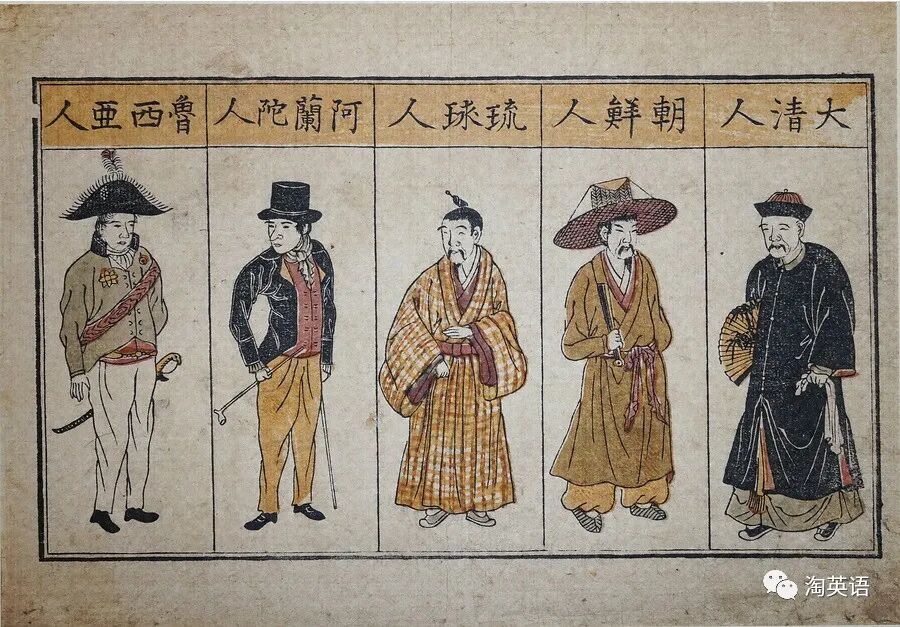 大清人
朝鮮人
琉球人
阿蘭陀人
魯西亜人
淘英语